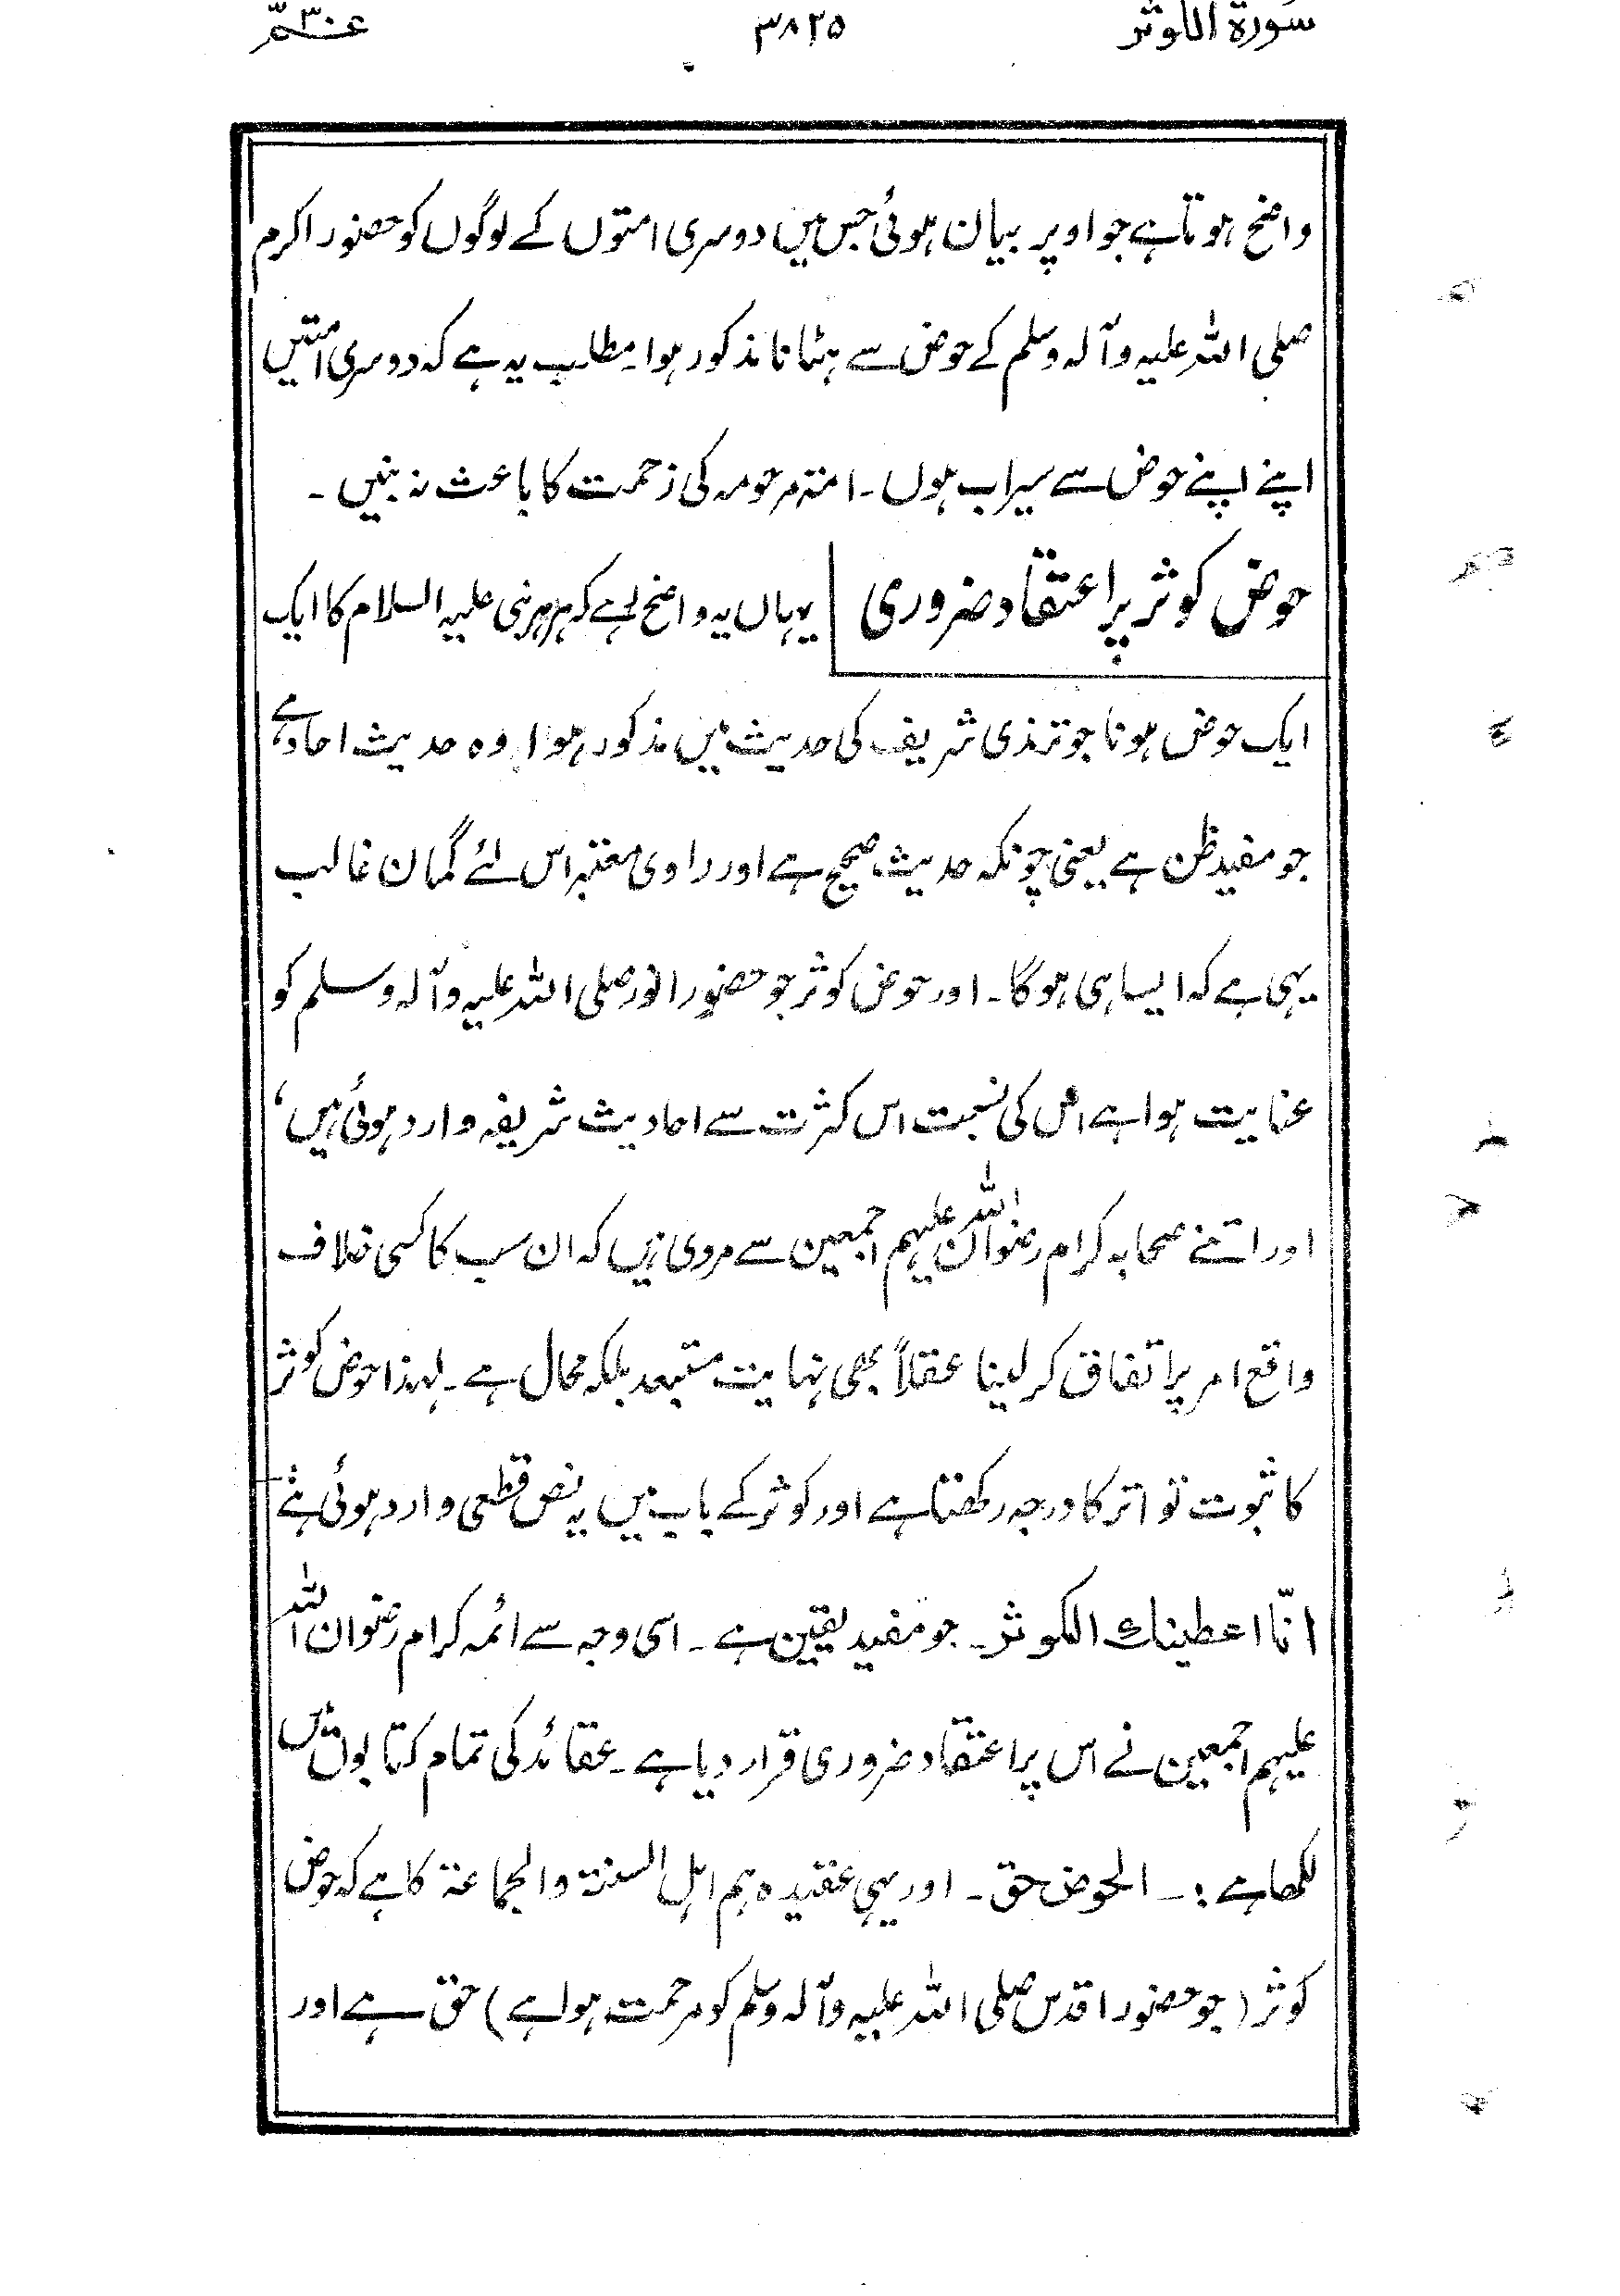 سورة الکوثر ۳۸۲۵ عم ۳۰
واضح ہوتا ہے جو اوپر بیان ہوئی جس میں دوسری امتوں کے لوگوں کو حضور اکرم
صلی اللہ علیہ وآلہ وسلم کے حوض سے ہٹانا مذکور ہوا۔ مطلب یہ ہے کہ دوسری امتیں
اپنے اپنے حوض سے سیراب ہوں۔ امتہ مرحومہ کی زحمت کا باعث نہ بنیں۔
حوض کوثر پر اعتقاد ضروری
یہاں یہ واضح رہے کہ ہر ہر نبی علیہ السلام کا ایک
ایک حوض ہونا جو ترمذی شریف کی حدیث میں مذکور ہوا وہ حدیث احاد ہے
جو مفید ظن ہے یعنی چونکہ حدیث صحیح ہے اور راوی معتبر اس لئے گمان غالب
یہی ہے کہ ایسا ہی ہو گا۔ اور حوض کوثر جو حضور انور صلی اللہ علیہ وآلہ وسلم کو
عنایت ہوا ہے اس کی نسبت اس کثرت سے احادیث شریفہ وارد ہوئی ہیں،
اور اتنے صحابہ کرام رضوان اللہ علیہم اجمعین سے مروی ہیں کہ ان سب کا کسی خلاف
واقع امر پر اتفاق کر لینا عقلاً بھی نہایت مستبعد بلکہ محال ہے۔ لہذا حوض کوثر
کا ثبوت تواتر کا درجہ رکھتا ہے اور کوثر کے باب میں یہ نص قطعی وارد ہوئی ہے
انّا اعطیناك الکوثر۔ جو مفید یقین ہے۔ اسی وجہ سے ائمہ کرام رضوان اللہ
علیہم اجمعین نے اس پر اعتقاد ضروری قرار دیا ہے۔ عقائد کی تمام کتابوں میں
لکھا ہے :۔ الحوض حق۔ اور یہی عقیدہ ہم اہل السنتہ والجماعۃ کا ہے کہ حوض
کوثر (جو حضور اقدس صلی اللہ علیہ وآلہ وسلم کو مرحمت ہوا ہے) حق ہے اور